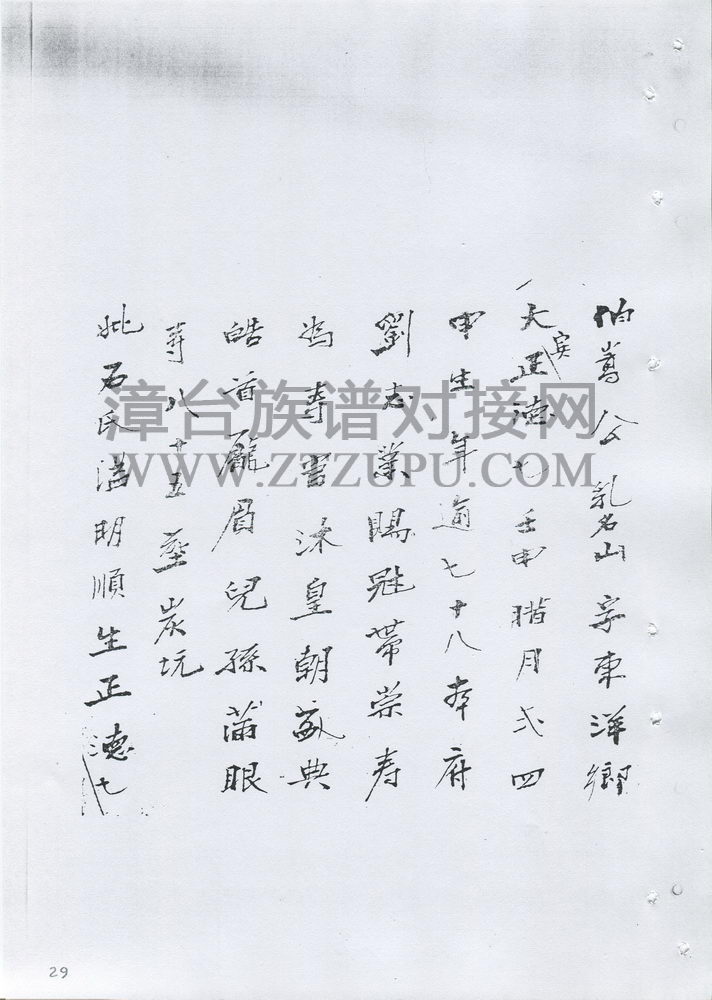 伯嵩公乳名山字東洋鄉
大賓正德七壬申腊月弍四
申生年逾七十八本府
劉志業賜冠帶崇寿
為壽官沐皇朝敬典
皓首龐眉兒孫蒲眼
寿八十五塟炭坑
妣石氏溫明順生正德七
漳台族谱对接网
WWW.ZTZUPU.COM
29